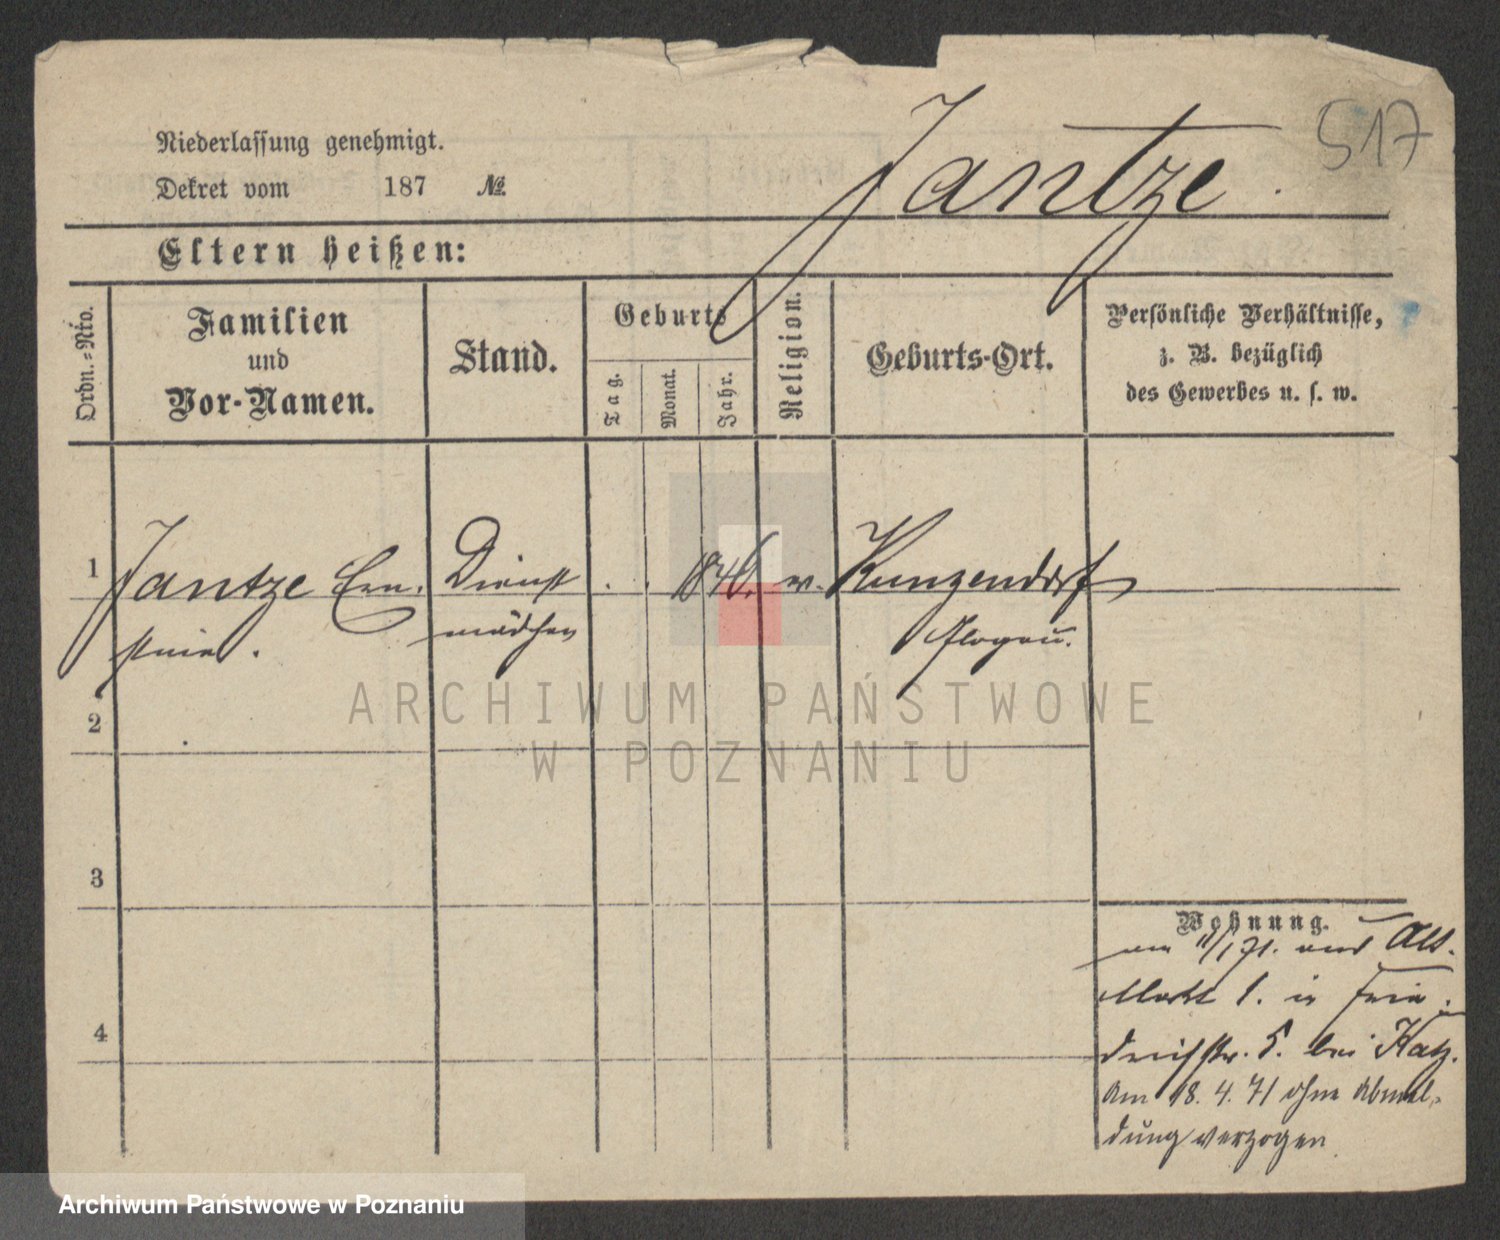 517
Jantze.
Niederlassung genehmigt.
Dekret vom 187 №
Eltern heißen:
Ordn.-Nro.
Familien
und
Vor-Namen.
Stand.
Geburts
Tag.
Monat.
Jahr.
Religion.
Geburts-Ort.
Persönliche Verhältnisse,
z. B. bezüglich
des Gewerbes u. s. w.
1 Jantze Ern. Dienst . . 1846. Kunzendorf
stine. mädchen Glogau.
2
3
4
Wohnung.
am 71. Alt.
Markt 1. in Frie.
drichstr. 5. bei Katz.
Am 18. 4. 71 ohne Abmel-
dung verzogen
ARCHIWUM PAŃSTWOWE
W POZNANIU
Archiwum Państwowe w Poznaniu